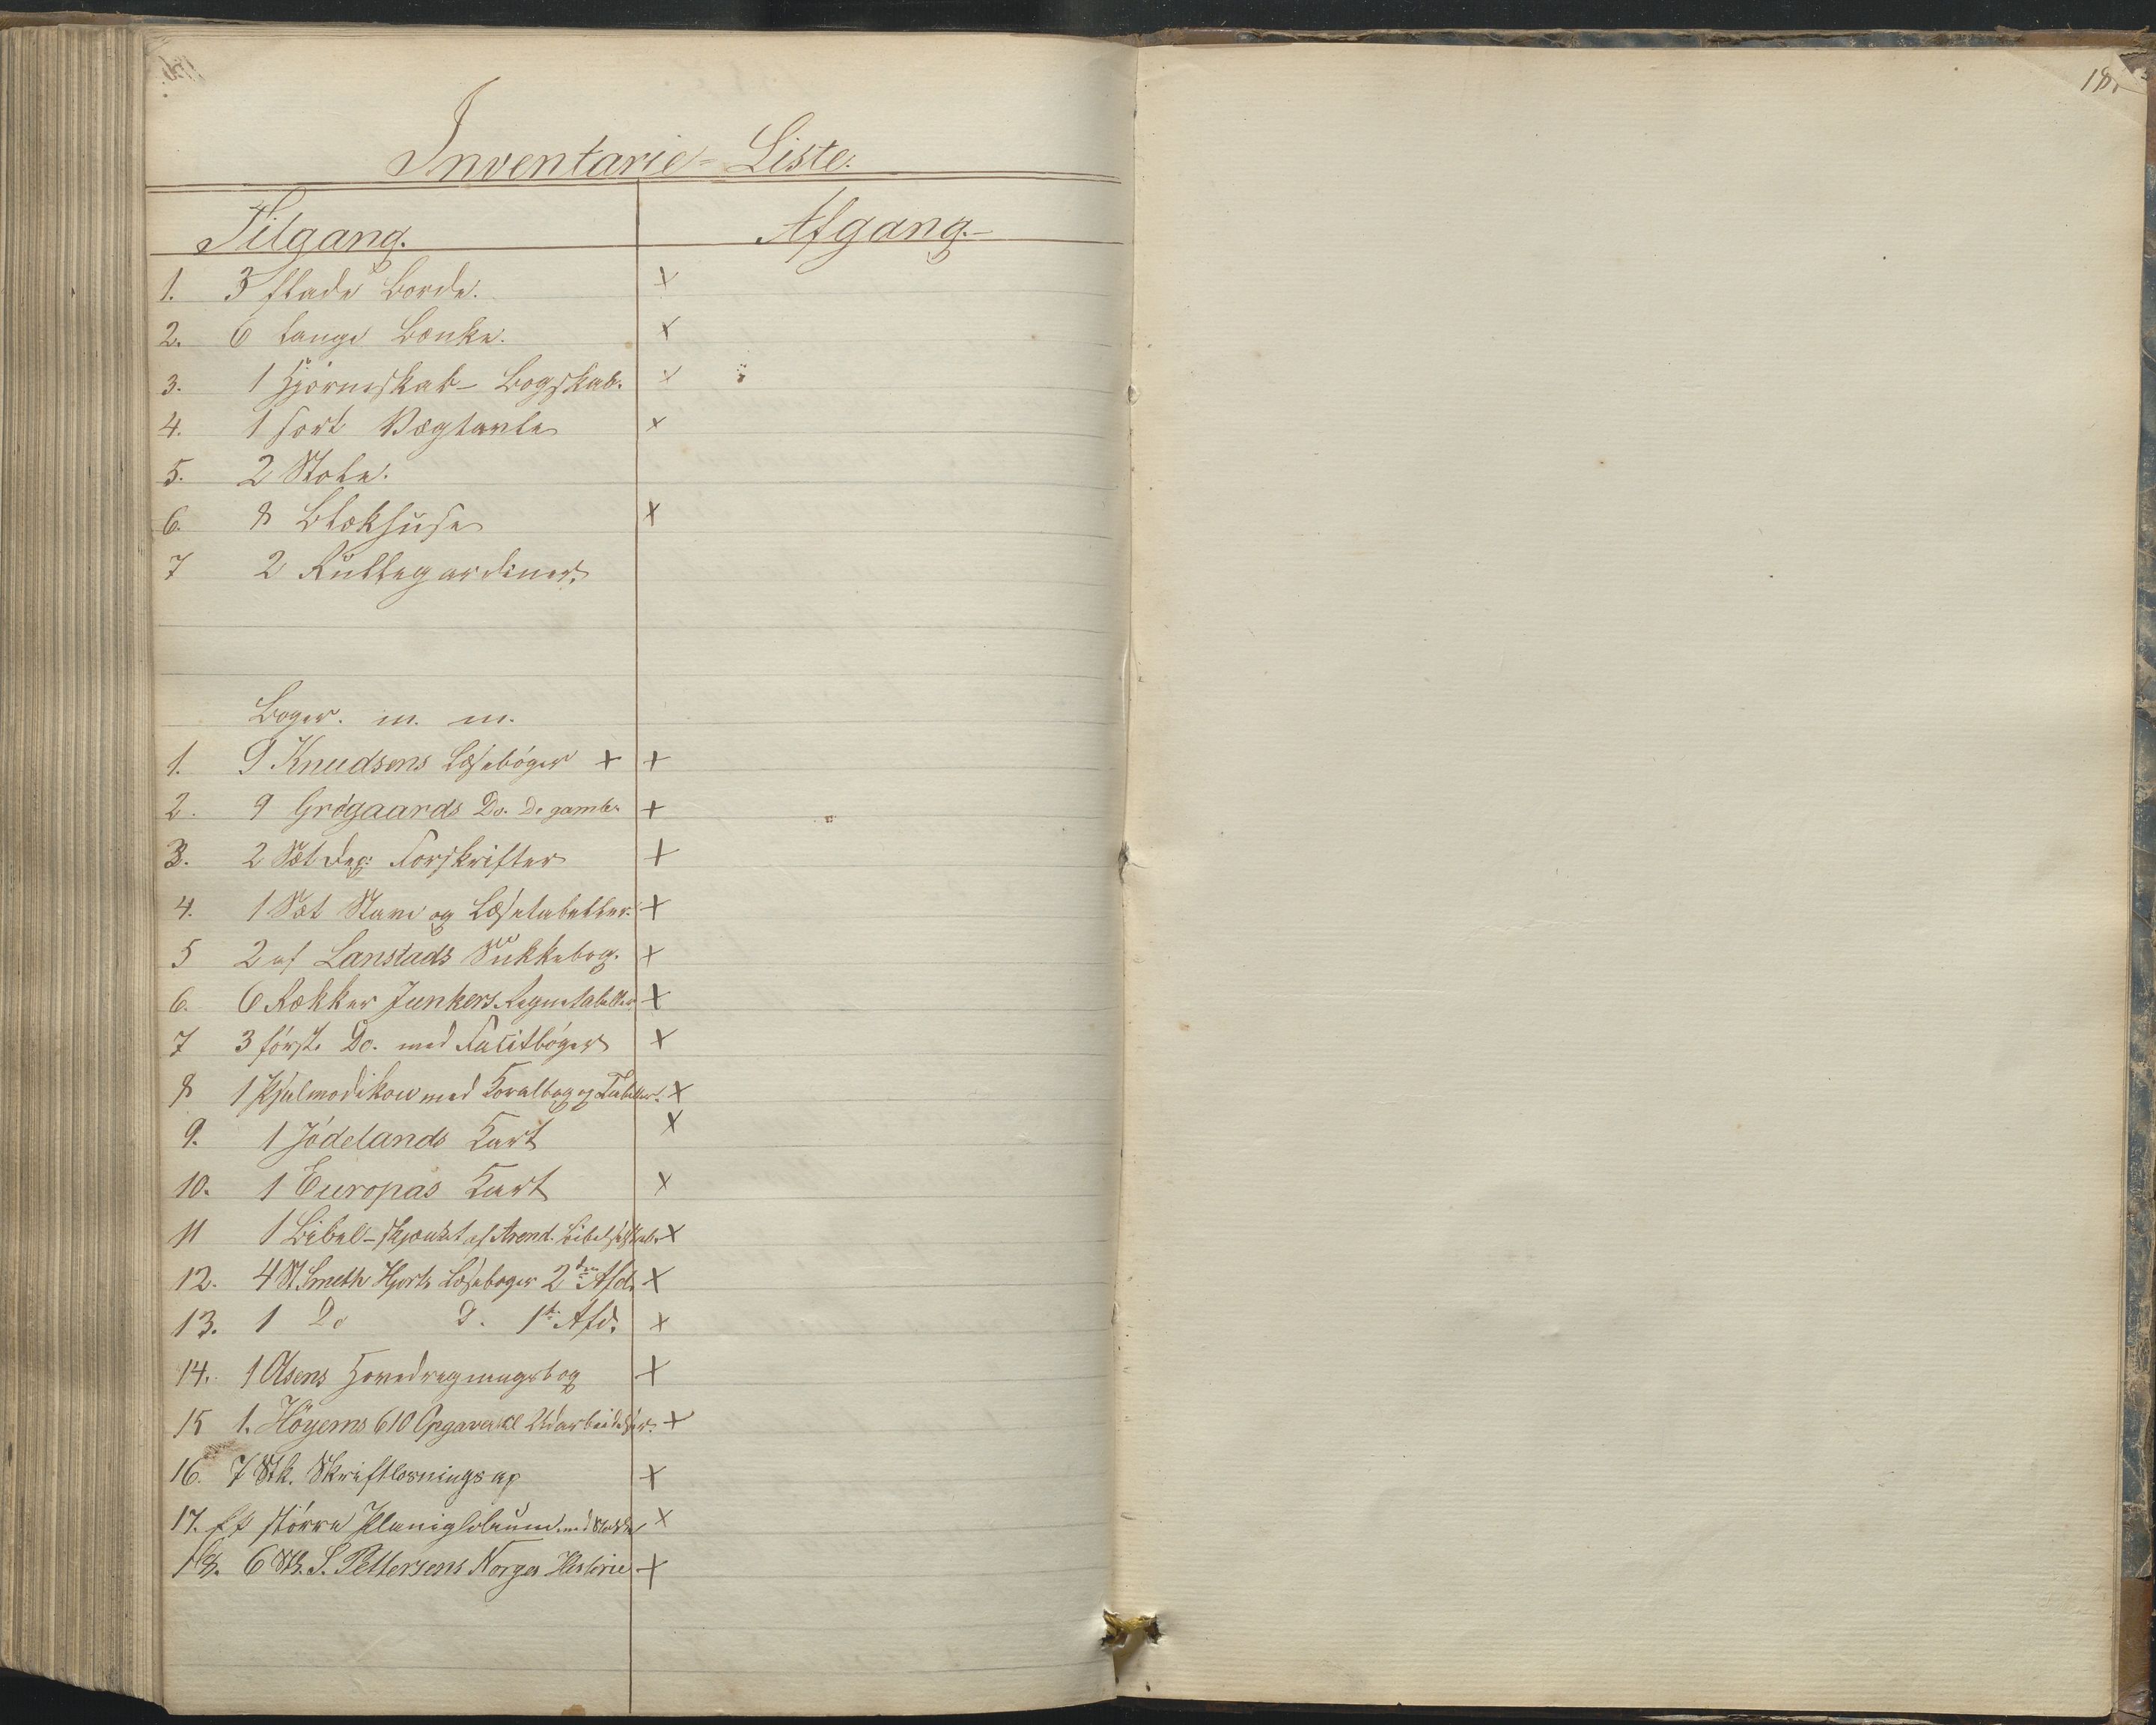 18
Inventarie-Liste.
Tilgang. Afgang.-
1. 3 flade Borde. x
2. 6 lange Bænke. x
3. 1 Hjørneskab - Bogskab. x
4. 1 sort Vægtavle x
5. 2 Stole.
6. 8 Blækhuse x
7 2 Rullegardiner.
Bøger. m. m.
1. 9 Knudsens Læsebøger + +
2. 9 Grøgaards Do. De gamle +
3. 2 Sæt Forskrifter +
4. 1 Sæt Stave og Læsetabeller. +
5 2 af Lanstads Sukkebog. +
6. 6 Rækker Junkers Regnetabeller x
7 3 første Do. med Facitbøger x
8 1 Psalmodikon med Koralbog og Tabeller. x
9. 1 Jødelands Kart x
10. 1 Europas Kart x
11 1 Bibel - skjænket af Arend. Bibelselskab. x
12. 4 St. Smith Hjorts Læsebøger 2den Afd. x
13. 1 Do D. 1ste Afd. x
14. 1 Olsens Hovedregningsbog x
15 1. Höyems 610 Opgaver til Udarbeidelser. +
16. 7 Stk. Skriftlæsningsap x
17. Et større Planiglobium med x
18. 6 Stk. S. Pettersens Norges Historie +